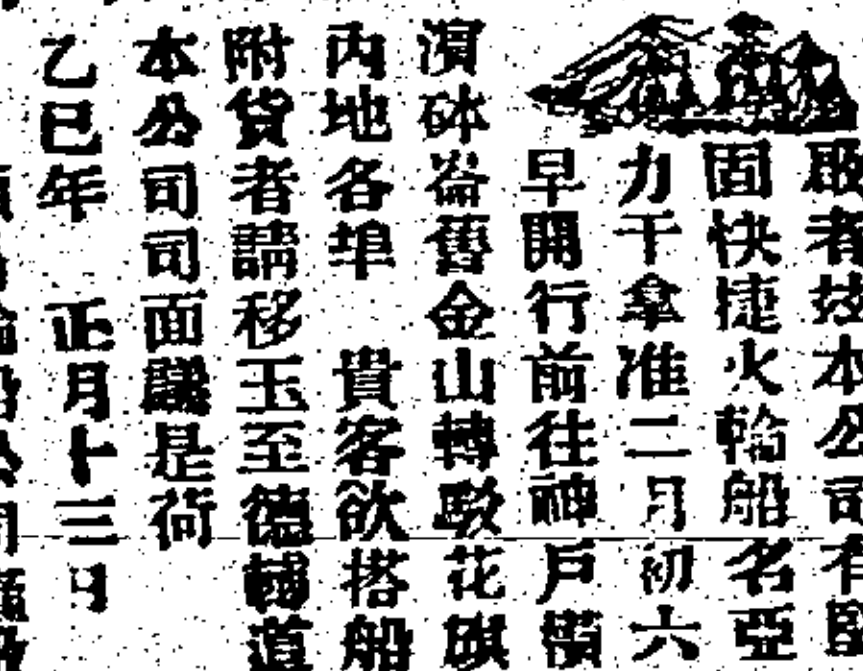 啟者玆本公司有堅
固快捷火輪船名亞
力干拿准二月初六
早開行前往神戶橫
濵砵崙舊金山轉駁花旗
內地各埠 貴客欲搭船
附貨者請移玉至德輔道
本公司司面議是荷
乙巳年 正月十三日